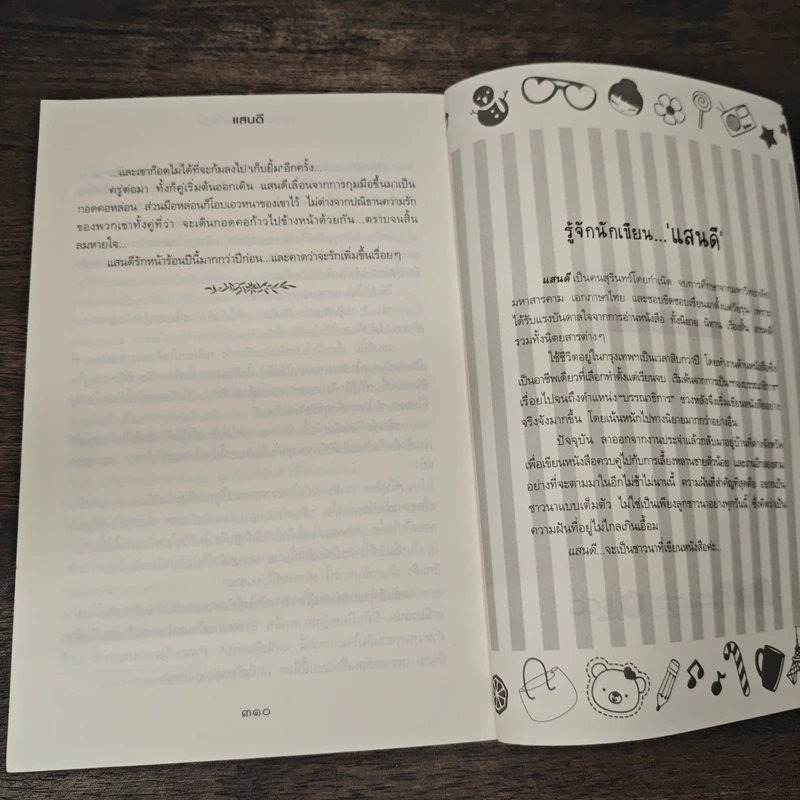 แสนดี
...และเขาก็อดไม่ได้ที่จะก้มลงไป "เก็บยิ้ม" อีกครั้ง...
ครู่ต่อมา ทั้งก็คู่เริ่มต้นออกเดิน แสนดีเลื่อนจากการกุมมือขึ้นมาเป็น
กอดคอหล่อน ส่วนมือหล่อนก็โอบเอวหนาของเขาไว้ ไม่ต่างจากปณิธานความรัก
ของพวกเขาทั้งคู่ที่ว่า จะเดินกอดคอก้าวไปข้างหน้าด้วยกัน...ตราบจนสิ้น
ลมหายใจ...
แสนดีรักหน้าร้อนปีนี้มากกว่าปีก่อน...และคาดว่าจะรักเพิ่มขึ้นเรื่อยๆ
๓๑๐
รู้จักนักเขียน..."แสนดี"
แสนดี เป็นคนสุรินทร์โดยกำเนิด จบการศึกษาจากมหาวิทยาลัย
มหาสารคาม เอกภาษาไทย และชอบขีดชอบเขียนมาตั้งแต่วัยรุ่น เพราะ
ได้รับแรงบันดาลใจจากการอ่านหนังสือ ทั้งนิยาย นิทาน เรื่องสั้น สารคดี
รวมทั้งนิตยสารต่างๆ
ใช้ชีวิตอยู่ในกรุงเทพฯเป็นเวลาสิบกว่าปี โดยทำงานด้านหนังสือซึ่ง
เป็นอาชีพเดียวที่เลือกทำตั้งแต่เรียนจบ เริ่มต้นจากการเป็น"กองบรรณาธิการ"
เรื่อยไปจนถึงตำแหน่ง"บรรณาธิการ" ช่วงหลังจึงเริ่มเขียนหนังสืออย่าง
จริงจังมากขึ้น โดยเน้นหนักไปทางนิยายมากกว่าอย่างอื่น
ปัจจุบัน ลาออกจากงานประจำแล้วกลับมาอยู่บ้านที่ต่างจังหวัด
เพื่อเขียนหนังสือควบคู่ไปกับการเลี้ยงหลานชายตัวน้อย และงานอีกสองสาม
อย่างที่จะตามมาในอีกไม่ช้าไม่นานนี้ ความฝันที่สำคัญที่สุดคือ อยากเป็น
ชาวนาแบบเต็มตัว ไม่ใช่เป็นเพียงลูกชาวนาอย่างทุกวันนี้ ซึ่งคิดว่าเป็น
ความฝันที่อยู่ไม่ไกลเกินเอื้อม
แสนดี...จะเป็นชาวนาที่เขียนหนังสือค่ะ..